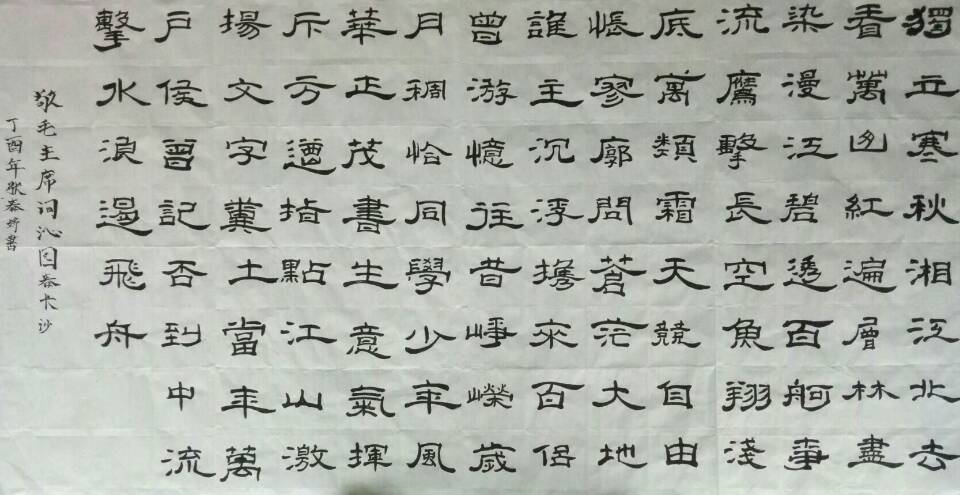 獨立寒秋湘江北去
看萬山紅遍層林盡
染漫江碧透百舸爭
流鷹擊長空魚翔淺
底萬類霜天競自由
悵寥廓問蒼茫大地
誰主沉浮攜來百侶
曾游憶往昔崢嶸歲
月稠恰同學少年風
華正茂書生意氣揮
斥方遒指點江山激
揚文字糞土當年萬
戶侯曾記否到中流
擊水浪遏飛舟
毛主席词沁园春长沙
丁酉年書